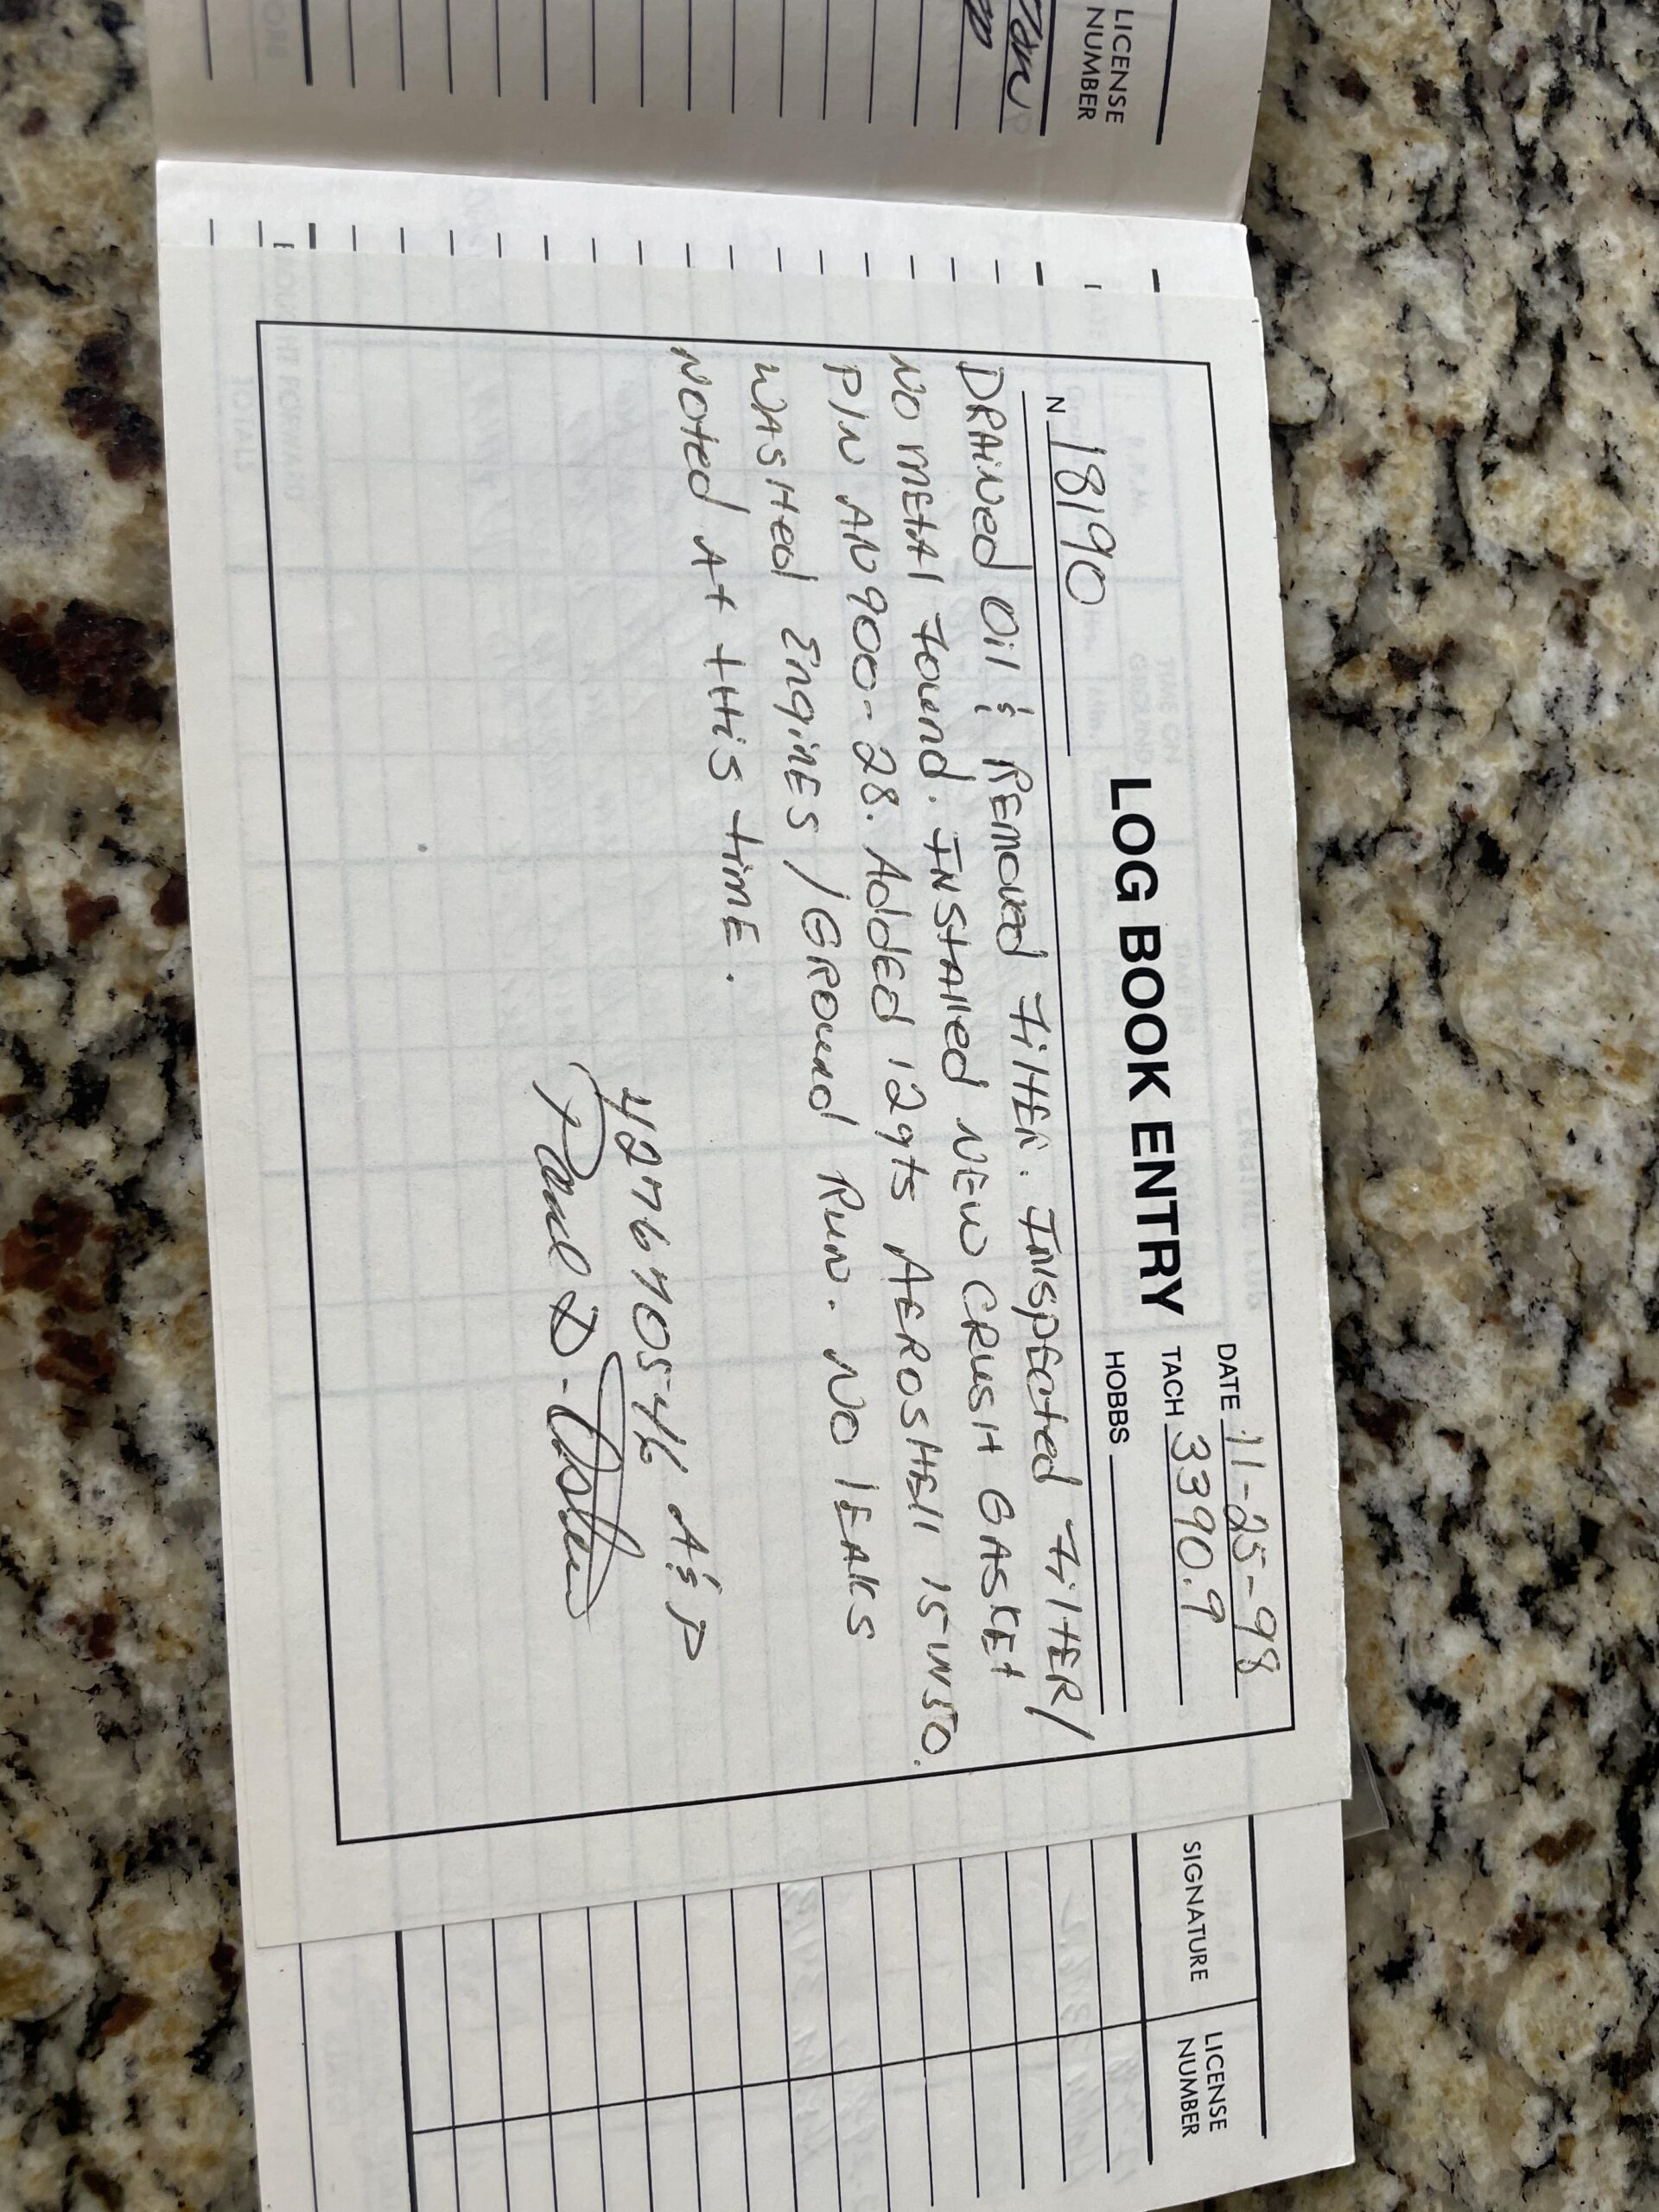 LICENSE
NUMBER
LOG BOOK ENTRY
DATE 11-25-98
TACH 3390.9
HOBBS
N 18190
DRAINED OIL & REMOVED FILTER. INSPECTED FILTER/
NO METAL FOUND. INSTALLED NEW CRUSH GASKET
P/N AN900-28. ADDED 12 qts AEROSHELL 15W50.
WASHED ENGINES/GROUND RUN. NO LEAKS
NOTED AT THIS TIME.
A&P
Paul D.
SIGNATURE
LICENSE
NUMBER